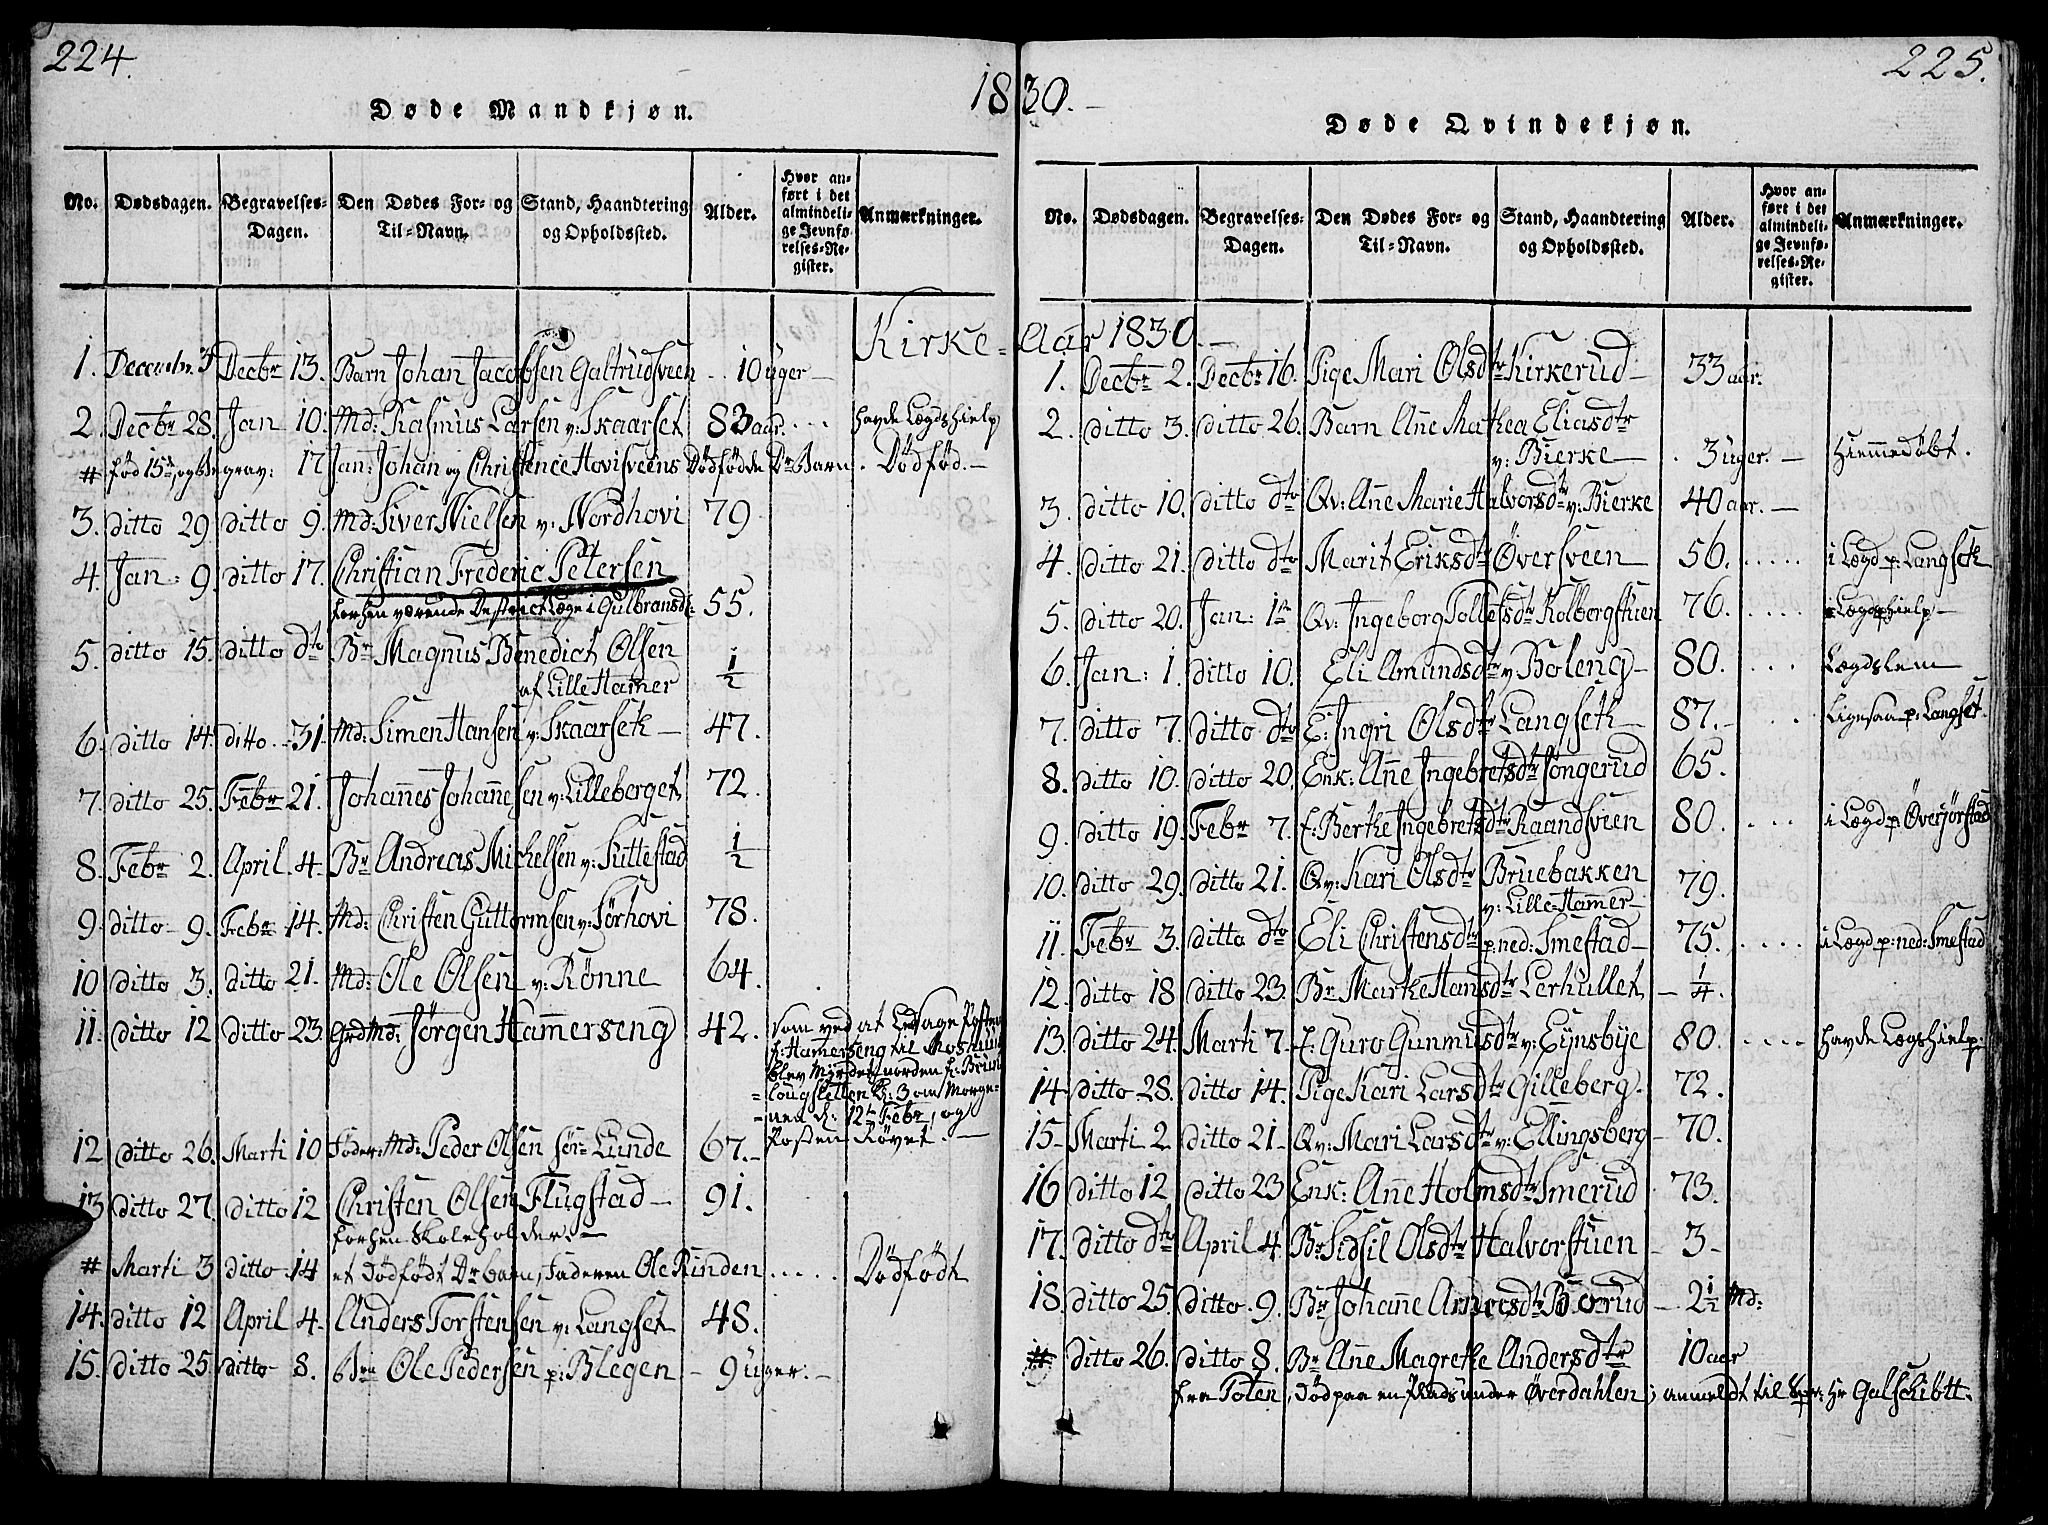 224.
1830.-
Døde Mandkjøn.
No. Dødsdagen. Begravelses-Dagen. Den Dødes For- og Til-Navn. Stand, Haandtering og Opholdssted. Alder. Hvor anført i det almindelige Jevnførelses-Register. Anmærkninger.
Kirke-
1. Decembr. 3 Decbr 13. Barn Johan Jacobsen Galtrudsveen - 10 uger -
2. Decbr 28. Jan 10. Md: Rasmus Larsen v: Skaarset 83 aar. . . . havde Lægdshielp
# fød 15de, og begrav: 17 Jan: Johan og Christence Hovisveens Dødfødde Dr Barn. Dödfød.-
3. ditto 29 ditto 9. Md: Siver Nielsen v: Nordhovi 79.
4. Jan: 9. ditto 17. Christian Frederic Petersen
forhen værende Destrict Læge i Gulbransd: 55.
5. ditto 15. ditto dto Br Magnus Benedict Olsen
af Lille Hamer 1/2
6. ditto 14. ditto. -31- Md: Simen Hansen v: Skaarset - 47.
7. ditto 25. Febr 21. Johannes Johannesen v: Lilleberget 72.
8. Febr 2. April 4. Br Andreas Michelsen v: Kittestad 1/2
9. ditto 9. Febr 14. Md: Christen Guttormsen v: Sørhovi 78.
10 ditto 3. ditto 21. Md: Ole Olsen v: Rönne 64.
11. ditto 12 ditto 23. Grdmd: Jørgen Hamerseng 42. som ved at Ledsage Posten
f: Hamerseng til
blev Myrdet norden f:
Kl: 3 om Morge-
nen d: 12te Febr, og
Posten Røvet. -
12 ditto 26. Marti 10 Føder: Md: Peder Olsen Sør-Lunde 67.-
13 ditto 27. ditto 12 Christen Olsen Flugstad - 91.
forhen Skoleholder -
# Marti 3 ditto 14 et Dödfödt Dr barn, Faderen Ole Rinden . . . . . Dödfödt
14. ditto 12 April 4. Anders Torstensen v: Langset 48.
15. ditto 25 ditto 8. Ole Pedersen p: Blegen - 9 uger. -
225.
Døde Qvindekjøn.
No. Dødsdagen. Begravelses-Dagen. Den Dødes For- og Til-Navn. Stand, Haandtering og Opholdssted. Alder. Hvor anført i det almindelige Jevnførelses-Register. Anmærkninger.
Aar 1830. -
1. Decbr 2. Decbr 16. Pige Mari Olsdtr Kirkerud - 33 aar.
2. ditto 3. ditto 26. Barn Ane Mathea Eliasdtr
v: Bierke - 3 uger. - Hiemmedøbt.
3. ditto 10. ditto dto Qv: Ane Marie Halvorsdtr v: Bierke 40 aar. -
4. ditto 21. ditto dto Marit Eriksdtr Översveen 56. . . . . . i Lægd p: Langset
5. ditto 20. Jan: 1te Qv: Ingeborg Tollefsdtr Kolbergstuen 76. . . . . Lægdhielp -
6. Jan: 1. ditto 10. Eli Amundsdtr v Boleng - 80. . . . Lægdslem
7. ditto 7. ditto dto E: Ingri Olsdtr Langset - 87. - . . ligesaa p: Langset
8. ditto 10. ditto 20. Enk: Ane Ingebretsdtr Jongerud 65.
9. ditto 19. Febr 7. E: Berte Ingebretsdtr Raandsveen 80. . . . i Lægd p: Översörstad
10. ditto 29. ditto 21. Qv: Kari Olsdtr Bruebakken
v: Lille-Hamer - 79.
11. Febr 3. ditto dto Eli Christensdtr p: ned: Smestad - 75. . . . . i Lægd p: ned: Smestad
12. ditto 18 ditto 23. Br Marte Hansdtr Lerhullet - 1/4.
13. ditto 24. Marti 7. E: Guro Gunmusdtr v: Eynsbye 80. . . . . havde Lægshielp:
14 ditto 28. ditto 14. Pige Kari Larsdtr Gilleberg. 72.
15- Marti 2 ditto 21- Qv: Mari Larsdtr v: Ellingsberg - 70.
16 ditto 12. ditto 23 Enk: Ane Holmsdtr Smerud 73.
17. ditto dto April 4. Br Sidsil Olsdtr Halvorstuen - 3 -
18. ditto 25. ditto 9. Br Johanne - 2 1/2 Md:
# ditto 26. ditto 8. Br Ane Magrete Andersdtr 10 aar
fra Toten, død paa en Plads under Överdahlen; anmeldt til Hr Galschiött.